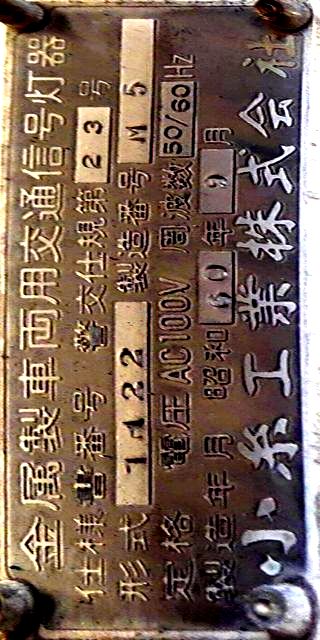 金属製車両用交通信号灯器
仕様書番号 警交仕規第23号
形式 1422 製造番号 M5
定格 電圧AC100V 周波数50/60Hz
製造年月 昭和60年9月
小糸工業株式会社